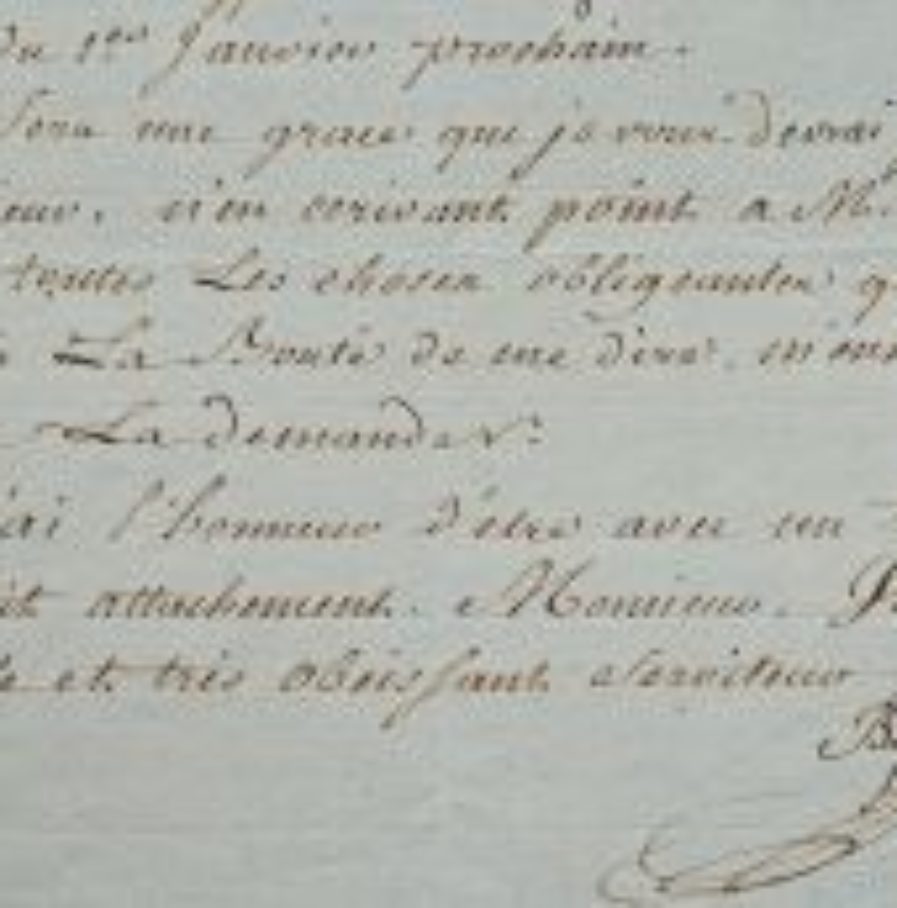 du 1er Janvier prochain.
Sera une grace que je vous devrai
n'en ecrivant point a Mr.
toutes Les choses obligeantes
La Bonté de me dire, m'en
La demande
l'honneur d'etre avec un
attachement. Monsieur.
et très obéissant Serviteur